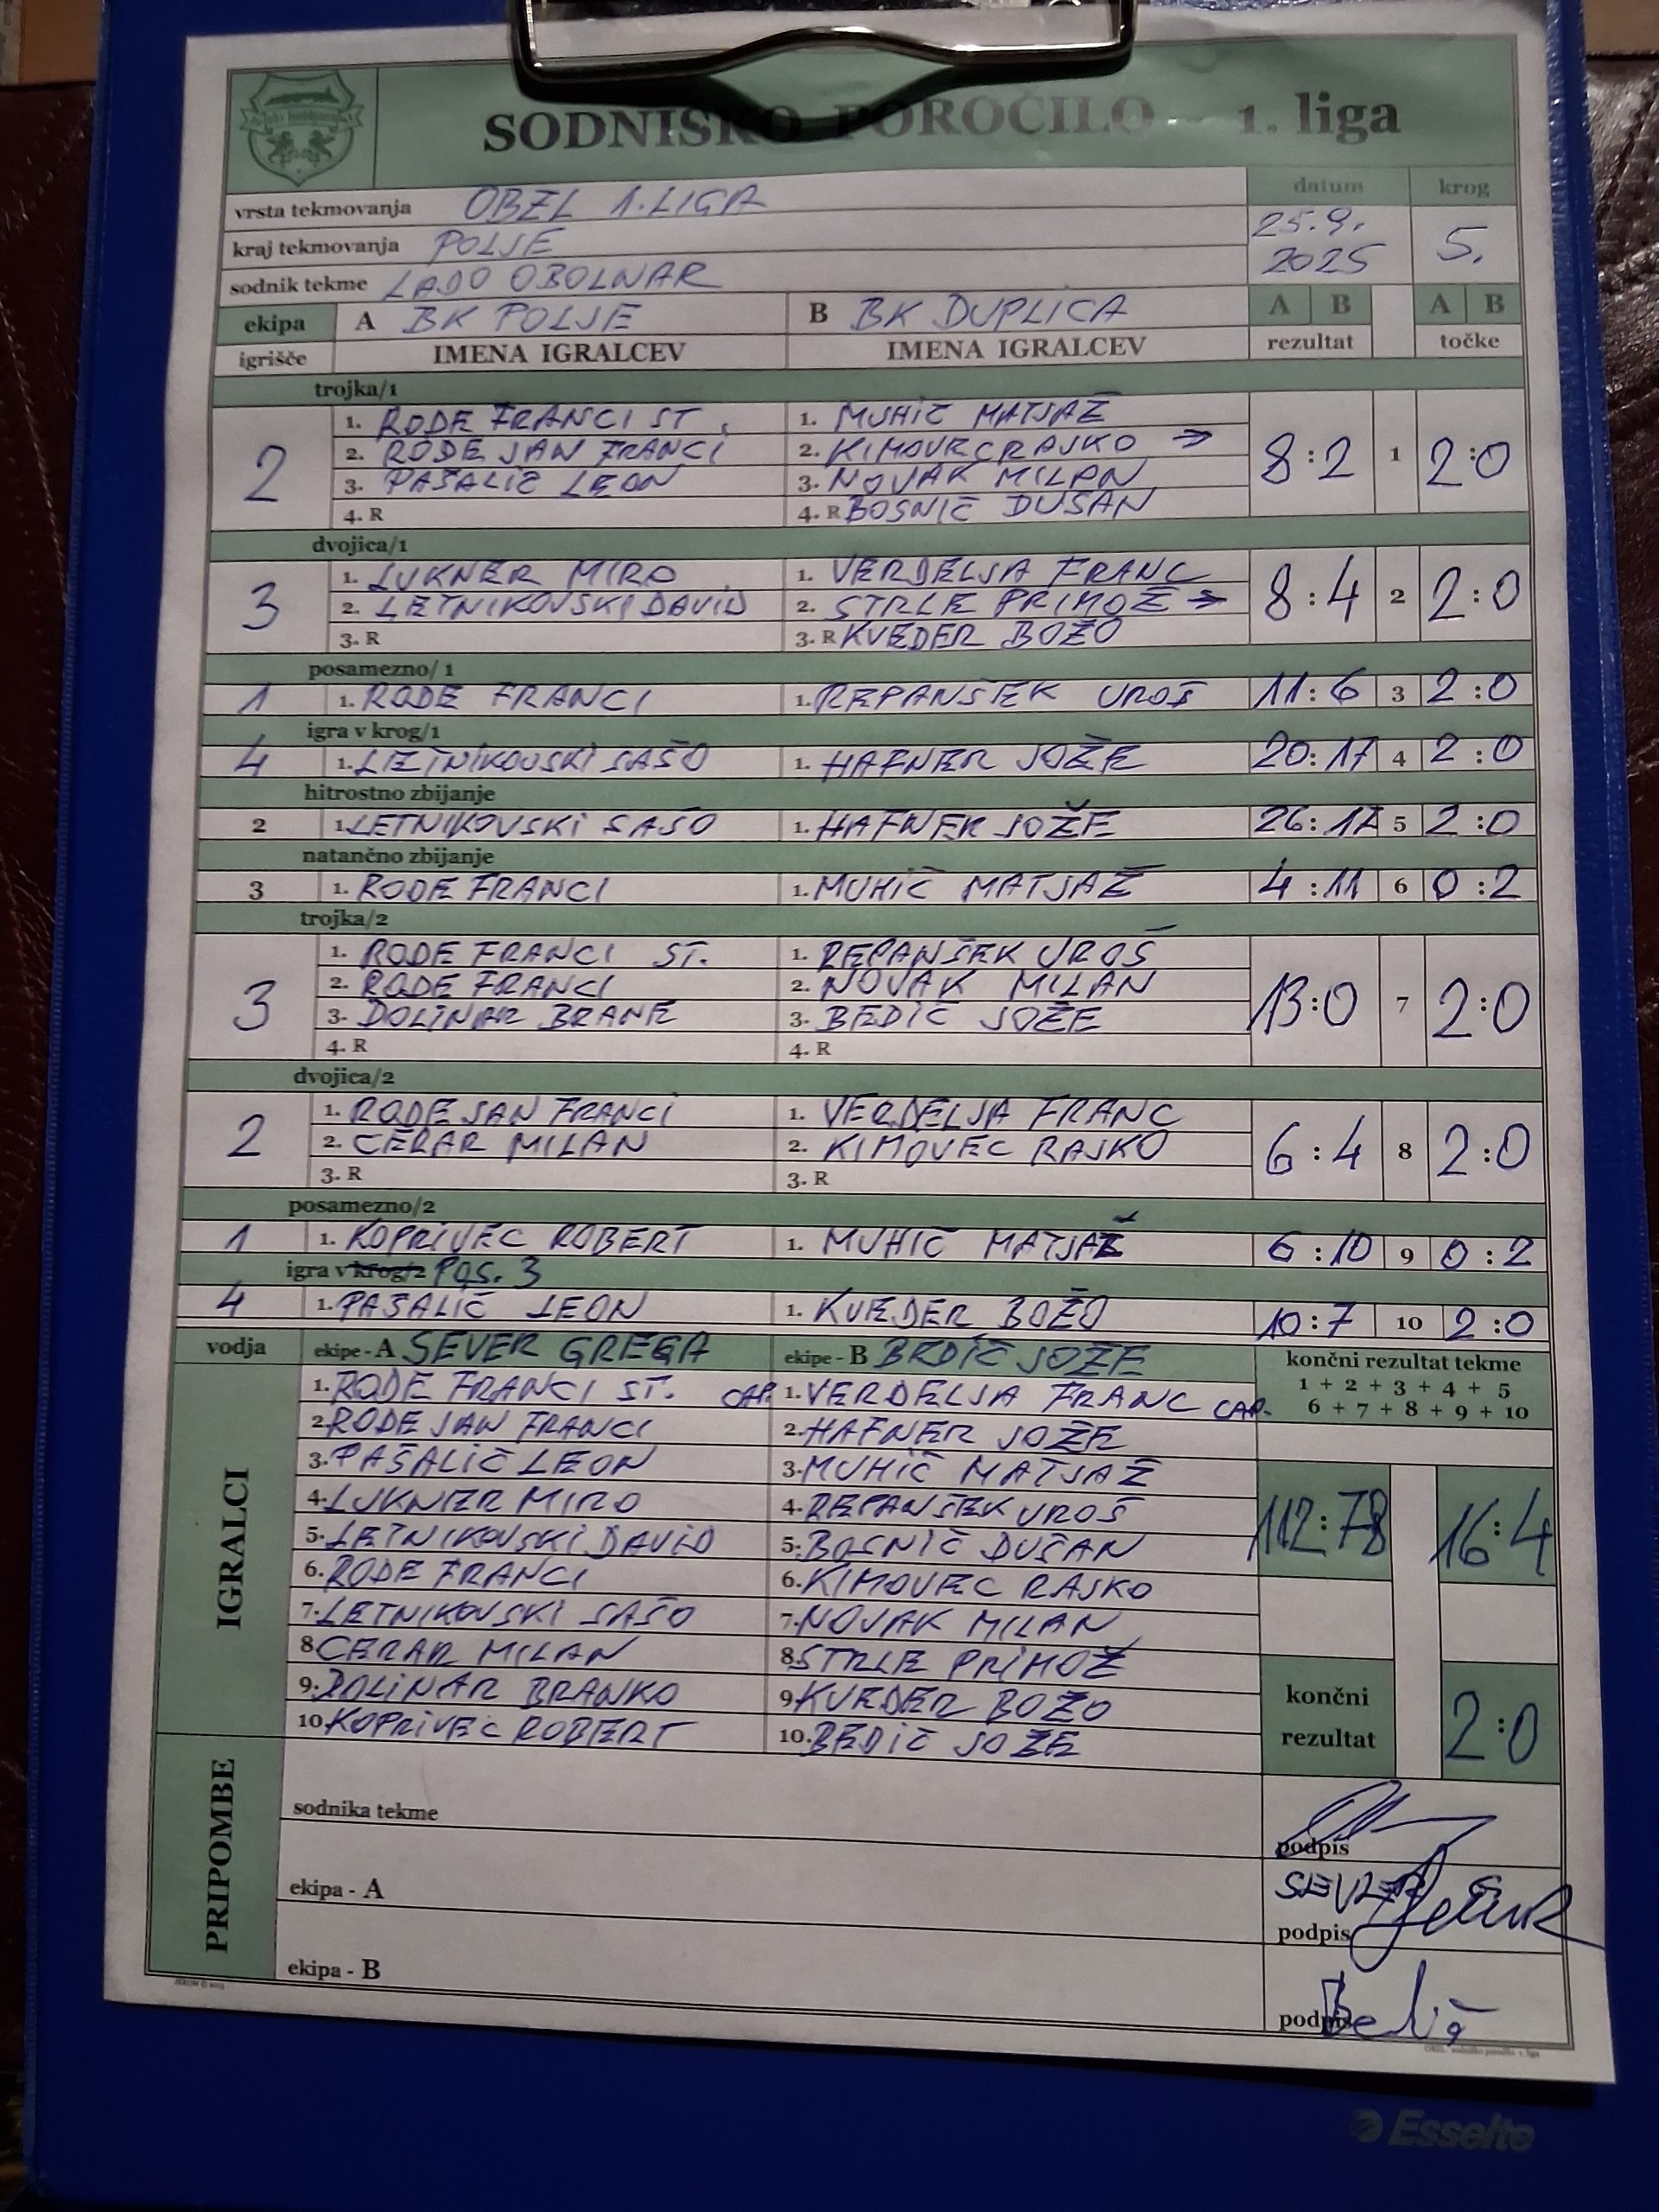 SODNIŠKO POROČILO - 1. liga
vrsta tekmovanja OBZL 1. LIGA
datum krog
kraj tekmovanja POLJE
25.9. 2025 5.
sodnik tekme LADO OBOLNAR
ekipa A BK POLJE B BK DUPLICA A B A B
igrišče IMENA IGRALCEV IMENA IGRALCEV rezultat točke
trojka/1
1. RODE FRANCI ST. 1. MUHIČ MATJAŽ
2. RODE JAN FRANCI 2. KIMOVEC RAJKO →
2 3. PAŠALIČ LEON 3. NOVAK MILAN 8:2 1 2:0
4. R 4. R BOSNIČ DUŠAN
dvojica/1
1. LUKNER MIRO 1. VERDELJA FRANC
3 2. LETNIKOVSKI DAVID 2. STRLE PRIMOŽ → 8:4 2 2:0
3. R 3. R KVEDER BOŽO
posamezno/ 1
1 1. RODE FRANCI 1. REPANŠEK UROŠ 11:6 3 2:0
igra v krog/1
4 1. LETNIKOVSKI SAŠO 1. HAFNER JOŽE 20:17 4 2:0
hitrostno zbijanje
2 1. LETNIKOVSKI SAŠO 1. HAFNER JOŽE 26:17 5 2:0
natančno zbijanje
3 1. RODE FRANCI 1. MUHIČ MATJAŽ 4:11 6 0:2
trojka/2
1. RODE FRANCI ST. 1. REPANŠEK UROŠ
2. RODE FRANCI 2. NOVAK MILAN
3 3. DOLINAR BRANE 3. BEDIČ JOŽE 13:0 7 2:0
4. R 4. R
dvojica/2
1. RODE JAN FRANCI 1. VERDELJA FRANC
2 2. CERAR MILAN 2. KIMOVEC RAJKO 6:4 8 2:0
3. R 3. R
posamezno/2
1 1. KOPRIVEC ROBERT 1. MUHIČ MATJAŽ 6:10 9 0:2
igra v krog/2 POS. 3
4 1. PAŠALIČ LEON 1. KVEDER BOŽO 10:7 10 2:0
vodja ekipe - A SEVER GREGA ekipe - B BEDIČ JOŽE končni rezultat tekme
1 + 2 + 3 + 4 + 5
6 + 7 + 8 + 9 + 10
IGRALCI
1. RODE FRANCI ST. CAP. 1. VERDELJA FRANC CAP.
2. RODE JAN FRANCI 2. HAFNER JOŽE
3. PAŠALIČ LEON 3. MUHIČ MATJAŽ
4. LUKNER MIRO 4. REPANŠEK UROŠ
112:78 16:4
5. LETNIKOVSKI DAVID 5. BOSNIČ DUŠAN
6. RODE FRANCI 6. KIMOVEC RAJKO
7. LETNIKOVSKI SAŠO 7. NOVAK MILAN
8 CERAR MILAN 8. STRLE PRIMOŽ
9. DOLINAR BRANKO 9 KVEDER BOŽO
10. KOPRIVEC ROBERT 10. BEDIČ JOŽE
končni rezultat 2:0
PRIPOMBE
sodnika tekme
podpis
ekipa - A
SEVER
podpis
ekipa - B
podpis Bedič
Esselte